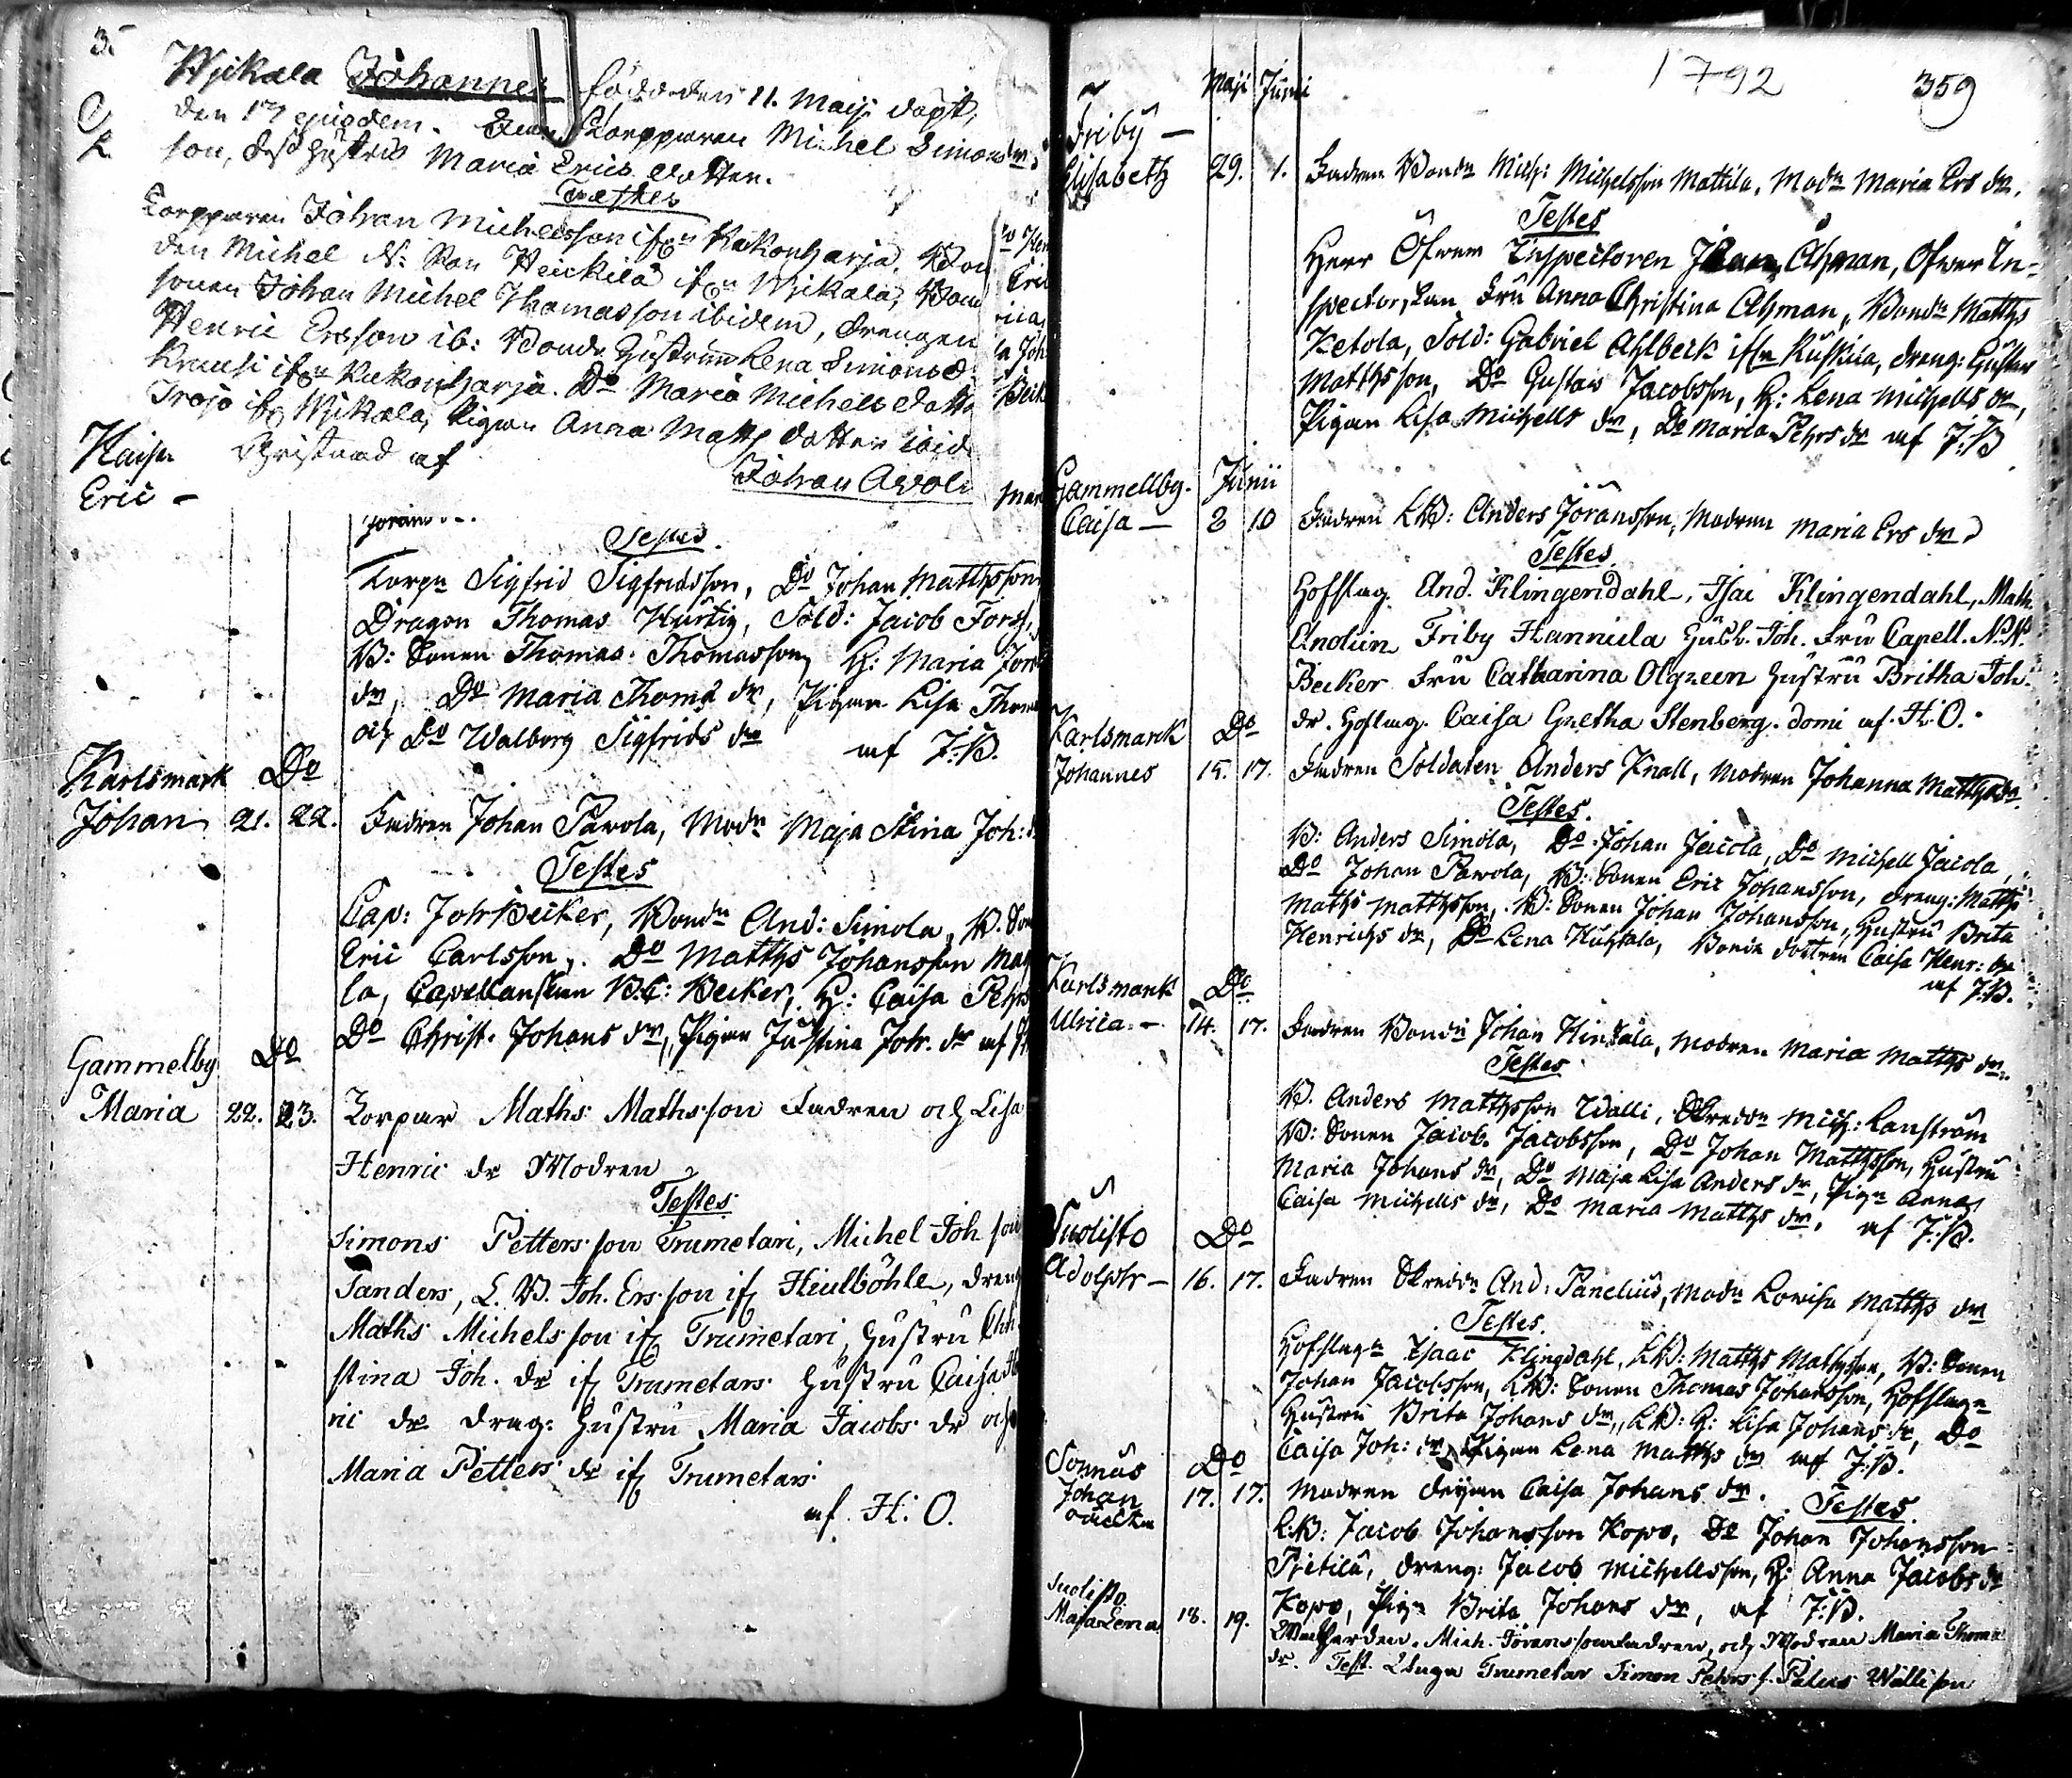 35
Wickala Johannes född den 11. Maji döpt,
den 17 ejusdem. Korpparen Michel Simons
son, dess hustru Maria Erics dotter.
Testes
Korpparen Johan Michelsson ifrn Kakonharja, Bon
den Michel N: Son Heickilä ifrn Wickala, Bond
sonen Johan Michel Thomasson ibidem, drengen
Henric Ersson ib: Bonde hustrun Lena Simons d
ifrn Kakonharja. Do Maria Michels dotter
ifr Wickala, Pigan Anna Matts dotter ibid
Christnad af
Johan Avol
Kaisa
Eric –
Testes.
Korpn Sigfrid Sigfridsson, Do Johan Matthsson
Dragon Thomas Hurtig, Sold: Jacob Fors
B: Sonen Thomas Thomasson, H: Maria
dr, Do Maria Thoms dr, Pigan Lisa Thom
och Do Walborg Sigfrids dr af J:B.
Karlsmark Do
Johan 21. 22. Fadren Johan Pavola, Modn Maja Stina Joh: d
Testes
Cap: Joh Becker, Bondn And: Simola, B. Son
Eric Carlsson, Do Matths Johansson
la, Capellanskan B.C: Becker, H: Caisa Pehrs
Do Christ. Johans dr, Pigan Justina Joh. dr af
Gammelby Do
Maria 22. 23. Korpar Maths Mathsson Fadren och Lisa
Henric dr Modren
Testes
Simons Petters son Trumetari, Michel Joh son
Sanders, L. B. Joh. Ers son ifr Heickböhle, dreng
Maths Michels son ifr Trumetari, hustru Chri
stina Joh. dr ifr Trumetars hustru Caisa H
ric dr drag: hustru Maria Jacobs dr och
Maria Petters dr ifr Trumetari
af H: O.
1792 359
Maji Junii
Friby –
Elisabeth 29. 1. Fadren Bondn Mich: Michelsson Mattila, Modn Maria Ers dr.
Testes
Herr Öfwer Inspectoren Johan Åhman, Öfwer In-
spectorskan Fru Anna Christina Åhman, Bondn Matths
Ketola, Sold: Gabriel Ahlbeck ifrn Kuskila, dreng: Gustav
Matthsson, Do Gustav Jacobsson, H: Lena Michells dr,
Pigan Lisa Michells dr, Do Maria Pehrs dr af J:B
Gammellby. Junii
Caisa – 8 10 Fadren LB: Anders Jöransson, Modren Maria Ers dr
Testes
Hofslag. And. Klingendahl, Isac Klingendahl, Math.
Friby Hannula Joh. Fru Capell. N.N.
Becker Fru Catharina Olgreen hustru Britha Joh.
dr. Hofslag. Caisa Gretha Stenberg. domi af H: O.
Karlsmark Do
Johannes 15. 17. Fadren Soldaten Anders Knall, Modren Johanna Matths dr.
Testes.
B: Anders Simola, Do Johan Jacola, Do Michell Jacola,
Do Johan Pavola, B: Sonen Eric Johansson, dreng: Matths
Maths Matthsson, B: Sonen Johan Johansson, hustru Brita
Henrichs dr, Do Lena Huhtala, Bonde dottren Caisa Henr: dr
af J:B.
Karlsmark Do
Ulrica – 14. 17. Fadren Bondn Johan Hindala, Modren Maria Matths dr.
Testes
B. Anders Matthsson Walli, Skreddn Mich: Lanström
B: Sonen Jacob Jacobsson, Do Johan Matthsson, hustru
Maria Johans dr, Do Maja Lisa Anders dr, Pign Anna
Caisa Michells dr, Do Maria Matths dr, af J:B.
Suolisto Do
Adolph – 16. 17. Fadren Skreddn And: Panelius, Modn Lowisa Matths dr
Testes.
Hofslagn Isaac Klingdahl, LB: Matths Mathsson, B: Sonen
Johan Jacobsson, LB: Sonen Thomas Johansson, Hofslagn
hustru Brita Johans dr, LB: H: Lisa Johans dr, Do
Caisa Joh: dr, Pigan Lena Matths dr af J:B.
Sonnäs Do
Johan 17. 17. Modren Caisa Johans dr. Testes
oäckta
L:B: Jacob Johansson Kopo, Do Johan Johansson
Pietilä, dreng: Jacob Michellsson, H: Anna Jacobs dr
Kopo, Pign Brita Johans dr, af J:B.
Suolisto
Maja Lena 18. 19. Mich. Jöransson Fadren, och Modren Maria Thoms
dr. Test. Trumetar Simon Pehrs s. Walli son